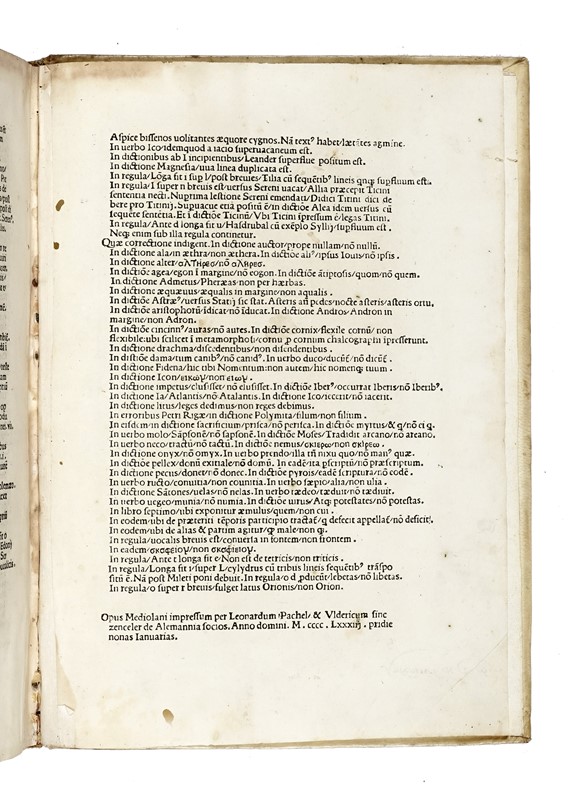 Aspice bissenos uolitantes æquore cygnos. Nã textꝰ habet/lætãtes agmine.
In uerbo Ico/idemquod a iacio superuacaneum est.
In dictionibus ab I incipientibus/Leander superflue positum est.
In dictione Magnesia/una linea duplicata est.
In regula/Lõga fit i sup l/post breuies/Tilia cũ sequẽtibꝰ lineis qnqꝫ supfluum est.
In regula/I super n breuis est/uersus Sereni uacat/Allia præcepit Ticini
sententia necti. Nuprima lestione Sereni emendati/Didici Titini dici de
bere pro Titinij. Supuacue etiã positũ ẽ/in dictiõe Alea idem uersus cũ
sequẽte sentẽtia. Et i dictiõe Ticinũ/Vbi Ticini ipressum ẽ/legas Titini.
In regula/Ante d longa fit u/Hasdrubal cũ exẽplo Syllij/supfluum est.
Neqꝫ enim sub illa regula continetur.
Quæ correctione indigent. In dictione auctor/prope nullam/nõ nullũ.
In dictione ala/in æthra/non æthera. In dictiõe aliꝰ/ipsus Iouis/nõ ipsis.
In dictione alter/αλτηρες/nõ αληρες.
In dictiõe agea/egon ĩ margine/nõ eogon. In dictiõe ãtiptosis/quom/nõ quem.
In dictione Admetus/Pheræas/non per hærbas.
In dictione æquæuus/æqualis in margine/non aqualis.
In dictiõe Astræꝰ/uersus Statij sic stat. Asteris an pedes/nocte asteris/asteris ortu.
In dictiõe aristophorũ/idicat/nõ iudicat. In dictione Andros/Andron in
margine/non Adron.
In dictiõe cincinnꝰ/auras/nõ aures. In dictiõe cornix/flexile cornũ/ non
flexibile.ubi scilicet i metamorphosi/cornu p cornum chalcographi ipresserunt.
In dictione drachma/discedentibus/non disendentibus.
In distiõe dama/tum canibꝰ/nõ canidꝰ. In uerbo duco/ducũt/nõ dicũt.
In dictione Fidena/hic tibi Nomentum:non autem/hic nomenqꝫ tuum.
In dictione Icon/εικων/non ειων.
In dictione impetus/clusisset/nõ elusisset. In dictiõe Iberꝰ/occurrat Iberis/nõ Iberibꝰ.
In dictione Ia/Atlantis/nõ Atalantis. In dictione Ico/iecerit/nõ iacerit.
In dictione litus/leges dedimus/non reges debimus.
In erroribus Petri Rigæ/in dictione Polymita/filum/non filium.
In eisdem/in dictione sacrificium/prisca/nõ petisca. In dictiõe myrtus/& q/nõ ei q.
In uerbo molo/Sãpsonẽ/nõ sapsonẽ. In dictiõe Moses/Tradidit arcano/nõ arceano.
In uerbo neco/tractũ/nõ tactũ. In dictiõe nemus/σκιερω/non σκιρεω.
In dictione onyx/nõ omyx. In uerbo prendo/illa tñ nixu quo/nõ manꝰ quæ.
In dictiõe pellex/donũ exitiale/nõ domũ. In eadẽ/ita pscriptũ/nõ præscriptum.
In dictione pectus/donet/nõ donec. In dictiõe pyrois/eadẽ scriptura/nõ eodẽ.
In uerbo ructo/conuitia/non counitia. In uerbo sæpio/alia/non ulia.
In dictione Sãtones/uelas/nõ nelas. In uerbo tædeo/tæduit/nõ tædruit.
In uerbo uegeo/munia/nõ numia. In dictiõe uirus/Atqꝫ potestates/nõ potestas.
In libro septimo/ubi exponitur æmulus/quem/non cui.
In eodem/ubi de præteriti tẽporis participio tractat/q defecit appellat/nõ deficit.
In eodem/ubi de alias & partim agitur/qꝫ male/non qꝫ.
In regula/uocalis breuis est/conuerta in fontem/non frontem.
In eadem/σκαφειον/non σκαφηιον.
In regula/Ante t longa fit e/Non est de tetricis/non triticis.
In regula/Longa fit i/super L/cylydrus cũ tribus lineis sequẽtibꝰ trãspo
sitũ ẽ. Nã post Mileti poni debuit. In regula/o d pducũt/lebetas/nõ libetas.
In regula/o super r breuis/fulget latus Orionis/non Orion.
Opus Mediolani impressum per Leonardum Pachel/ & Vldericum sinc
zenceler de Alemannia socios. Anno domini. M . cccc . Lxxxiij . pridie
nonas Ianuarias.